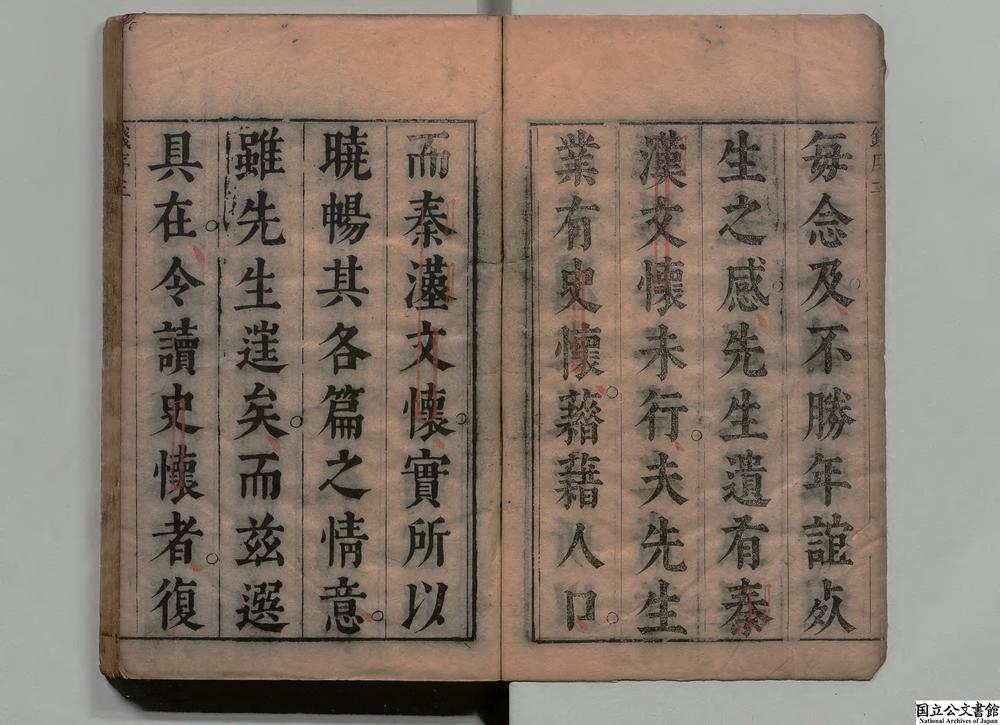 每念及不勝年誼夊
生之感先生遺有秦
漢文懷未行夫先生
業有史懷藉藉人口
而秦漢文懷實所以
曉暢其各篇之情意
雖先生逝矣而茲選
具在令讀史懷者復
国立公文書館
National Archives of Japan